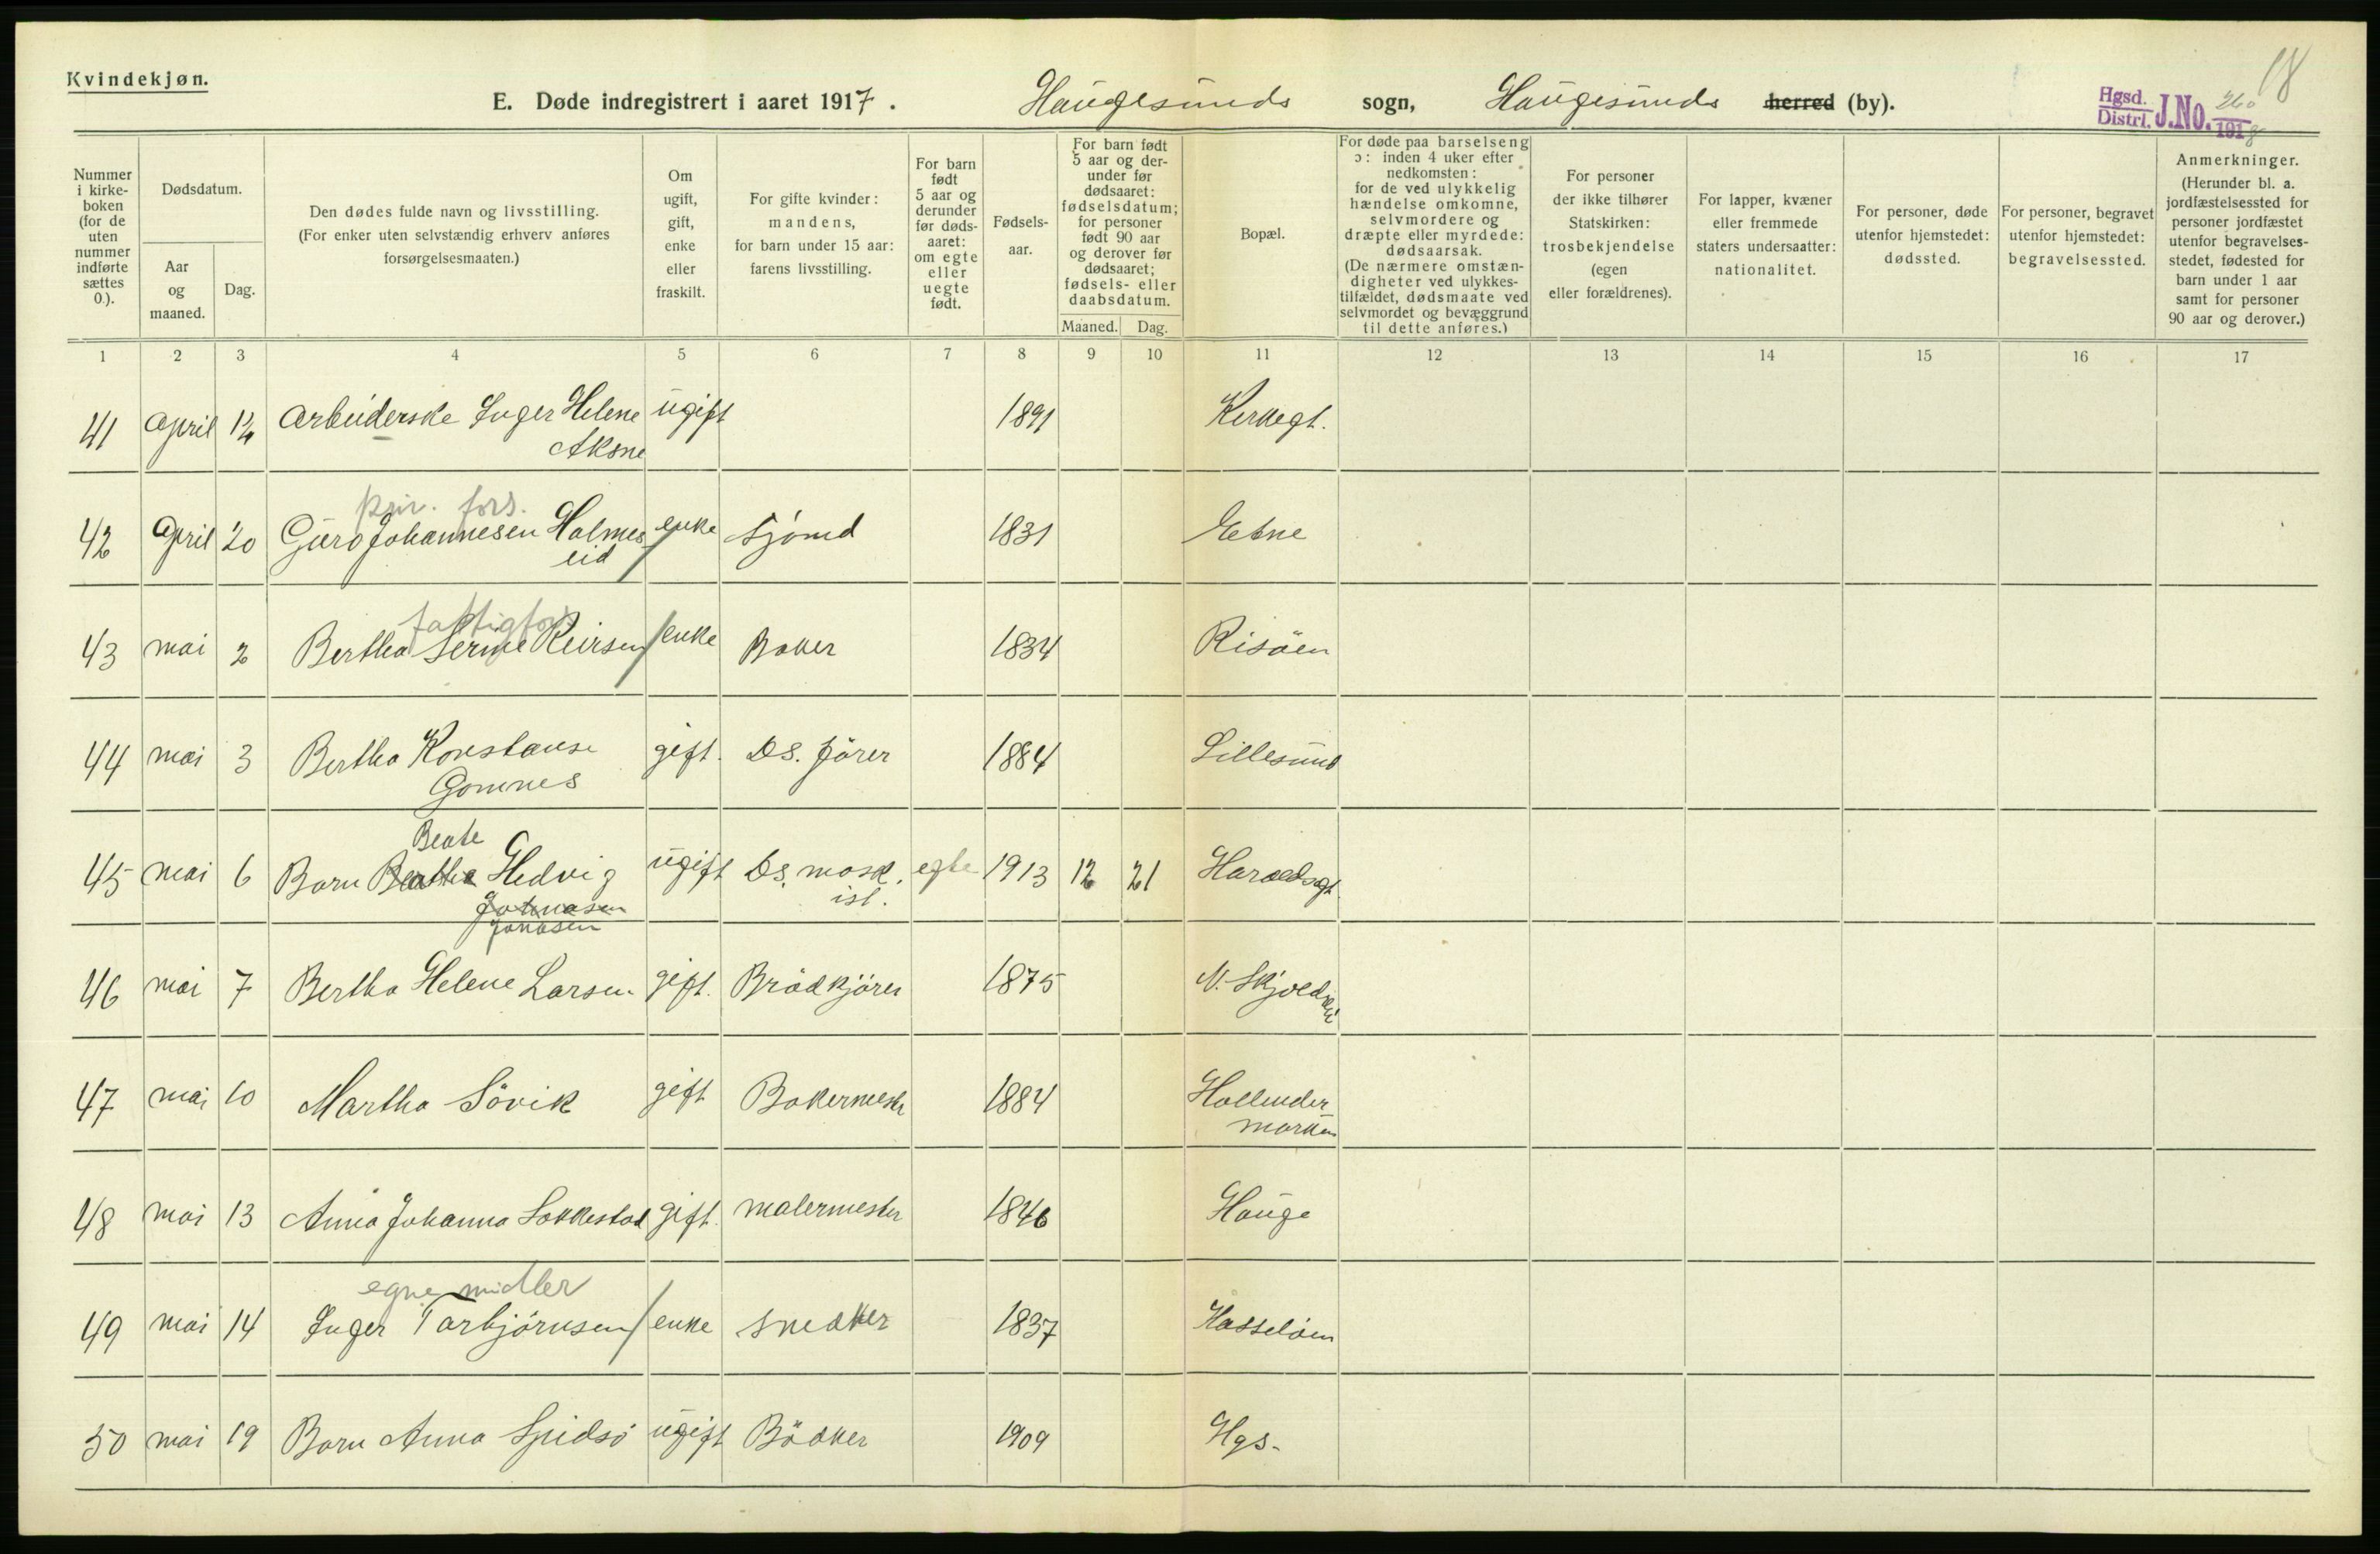 Kvindekjøn.
E. Døde indregistrert i aaret 1917. Haugesunds sogn, Haugesunds herred (by).
18
Hgsd. Distri. J.No. 1918
Nummer i kirke- boken (for de uten nummer indførte sættes 0.).
Dødsdatum.
Aar og maaned.
Dag.
Den dødes fulde navn og livsstilling. (For enker uten selvstændig erhverv anføres forsørgelsesmaaten.)
Om ugift, gift, enke eller fraskilt.
For gifte kvinder: mandens, for barn under 15 aar: farens livsstilling.
For barn født 5 aar og derunder før døds- aaret: om egte eller uegte født.
Fødsels- aar.
For barn født 5 aar og der- under før dødsaaret: fødselsdatum; for personer født 90 aar og derover før dødsaaret; fødsels- eller daabsdatum.
Maaned. Dag.
Bopæl.
For døde paa barselseng ɔ: inden 4 uker efter nedkomsten: for de ved ulykkelig hændelse omkomne, selvmordere og dræpte eller myrdede: dødsaarsak. (De nærmere omstæn- digheter ved ulykkes- tilfældet, dødsmaate ved selvmordet og bevæggrund til dette anføres.)
For personer der ikke tilhører Statskirken: trosbekjendelse (egen eller forældrenes).
For lapper, kvæner eller fremmede staters undersaatter: nationalitet.
For personer, døde utenfor hjemstedet: dødssted.
For personer, begravet utenfor hjemstedet: begravelsessted.
Anmerkninger. (Herunder bl. a. jordfæstelsessted for personer jordfæstet utenfor begravelses- stedet, fødested for barn under 1 aar samt for personer 90 aar og derover.)
1 2 3 4 5 6 7 8 9 10 11 12 13 14 15 16 17
41 April 14 Arbeiderske Inger Helene ugift 1891 Kirkegt.
Aksne
priv. fors.
42 April 20 Guro Johannesen Holmes enke Sjömd 1831 Etne
eid
fattigfors
43 mai 2 Bertha Serine Reiersen enke Baker 1834 Risöen
44 mai 3 Bertha Konstanse gift. Ds. förer 1884 Lillesund
Gomnes
Beate
45 mai 6 Barn Bertha Hedvig ugift Ds. mask. egte 1913 12 21 Haraldsgt.
Johnasen ist.
Jonasen
46 mai 7 Bertha Helene Larsen gift. Brödkjörer 1875 N. Skjoldav
47 mai 10 Martha Sövik gift Bakermester 1884 Hollender
marken
48 mai 13 Anna Johanna Sokkestad gift. malermester 1846 Hauge
egne midler
49 mai 14 Inger Torbjörnsen enke snedker 1837 Hasselöen
50 mai 19 Barn Anna Spidsö ugift Bödker 1909 Hgs.